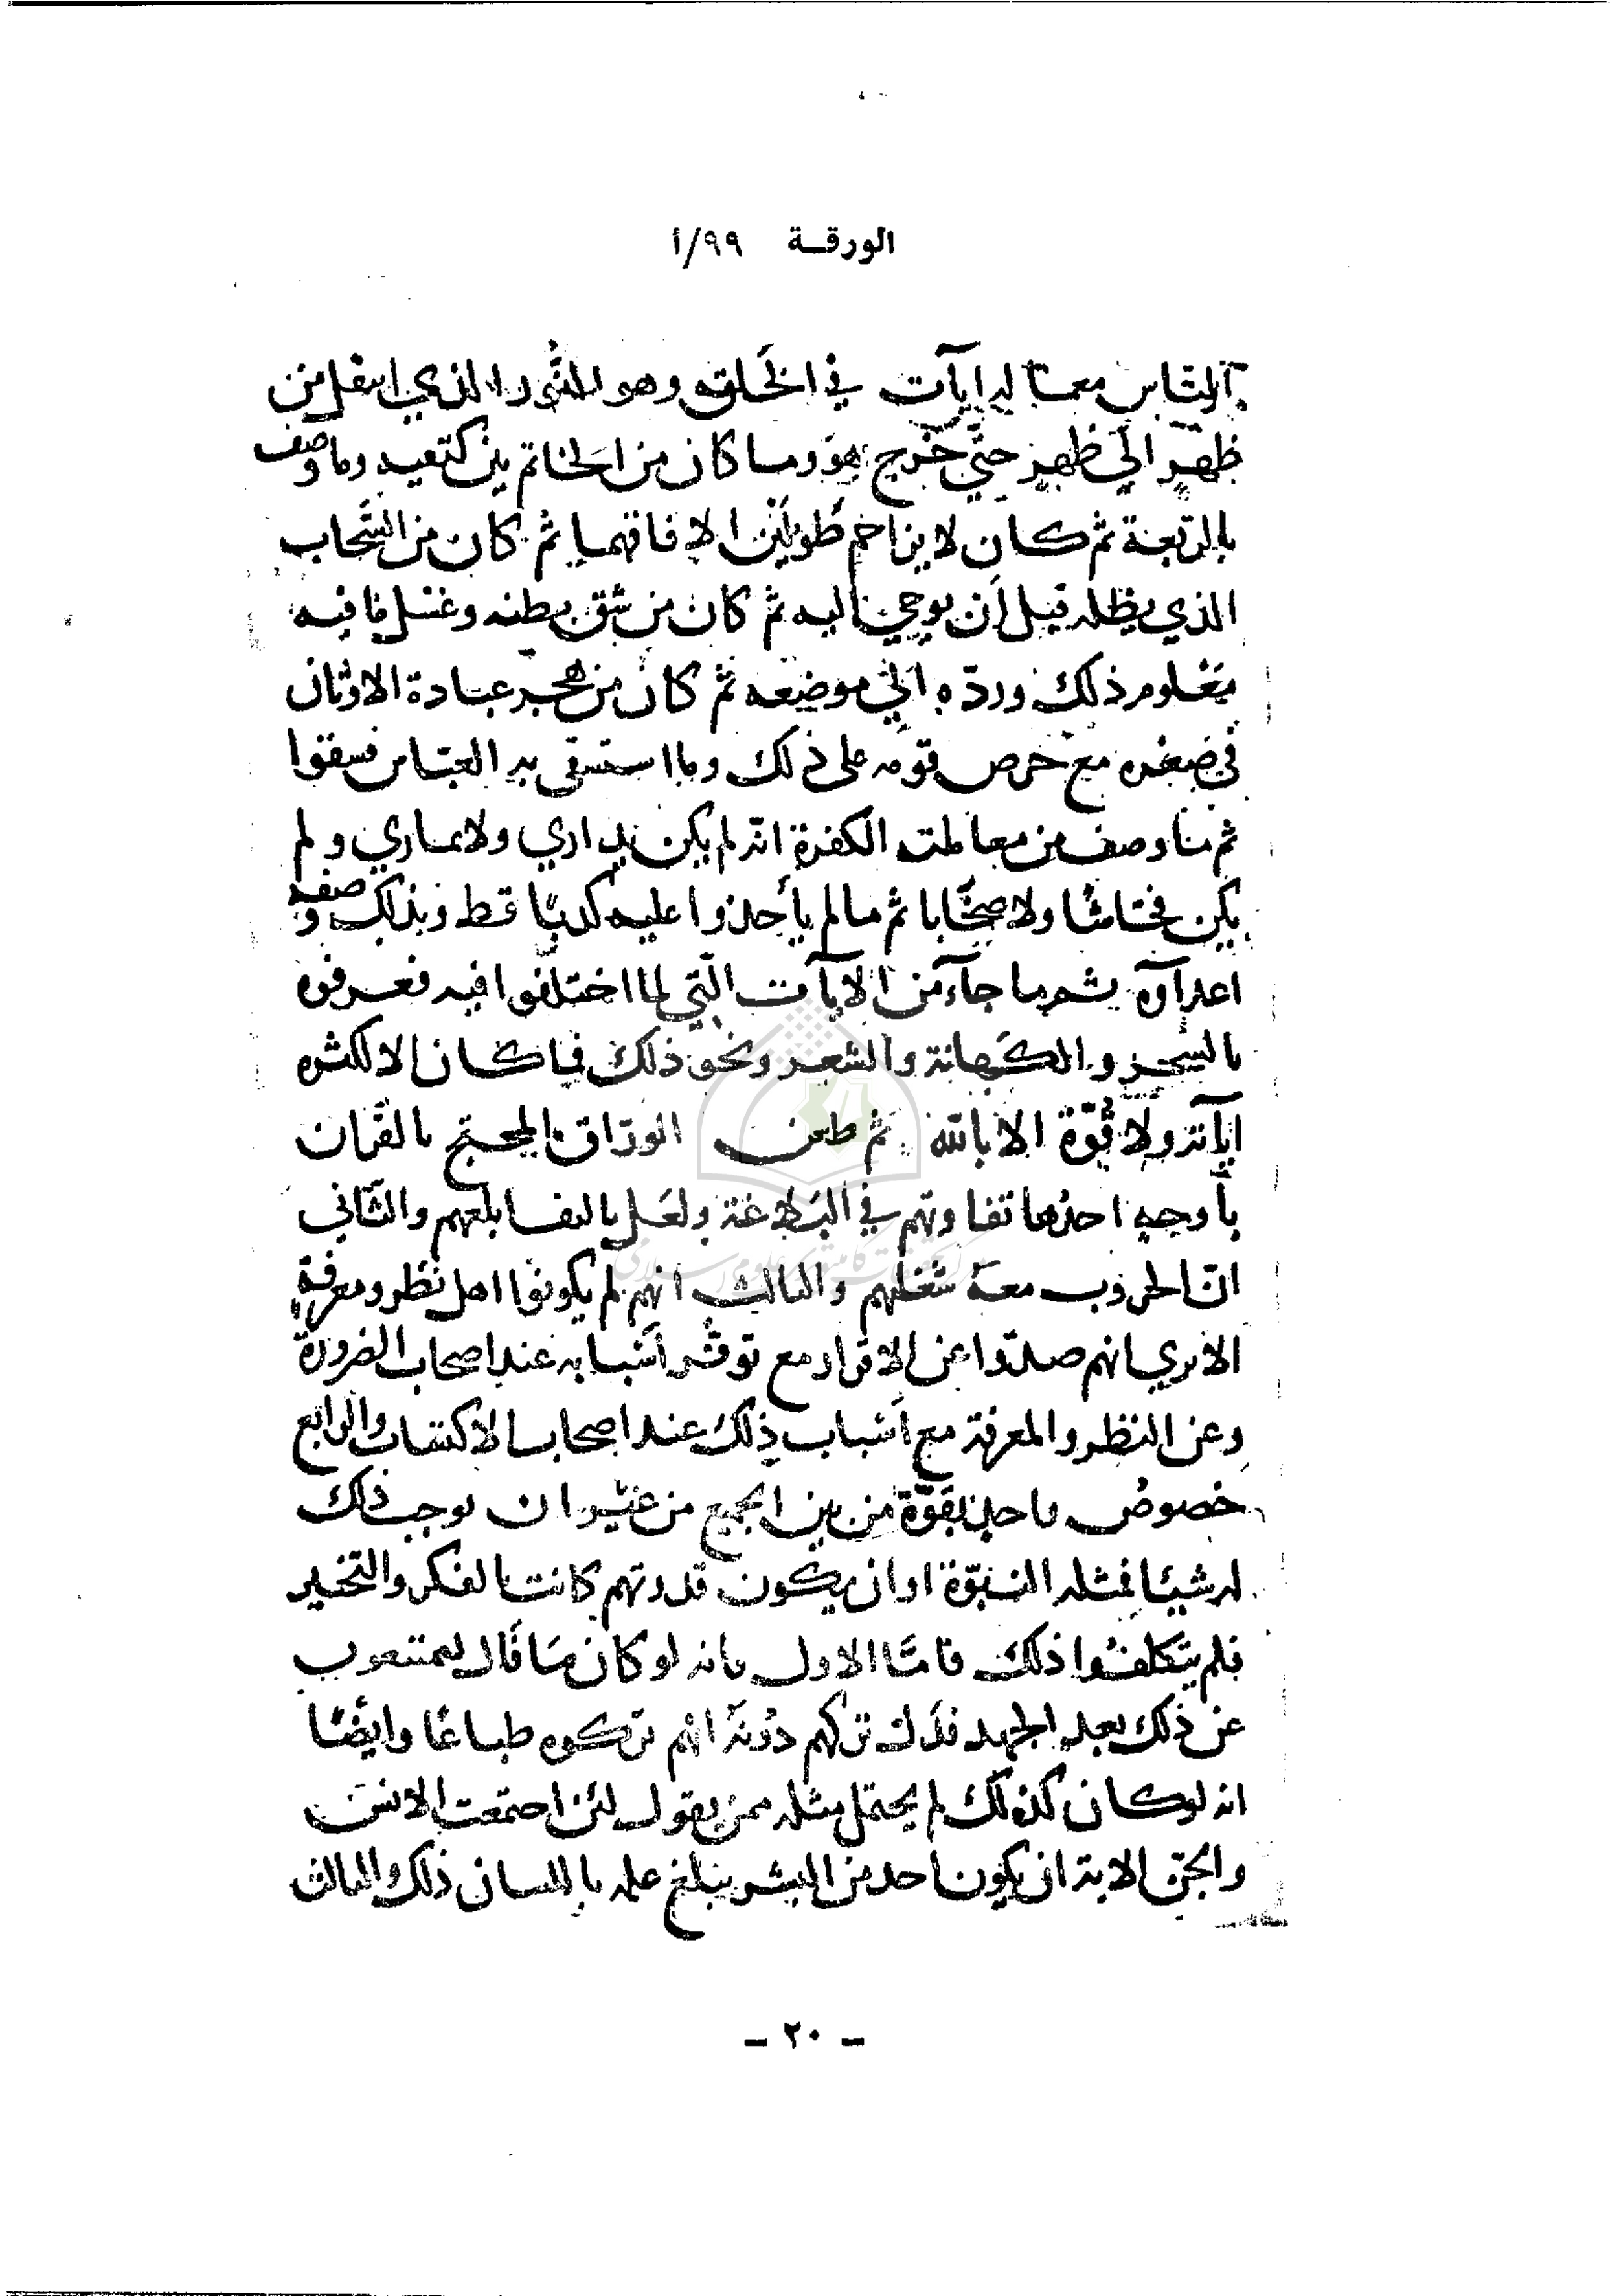 الورقة ٩٩/أ
الناس معما له ايات في الخلق وهو النور الذي انتقل من
ظهر الى ظهر حتى خرج هو وما كان من الخاتم بين كتفيه وما وصف
بالربعة ثم كان لا يزاحم طويلين الا فاقهما ثم كان من السحاب
الذي يظله قبل أن يوحى اليه ثم كان من شق بطنه وغسل ما فيه
معلوم ذلك وردّه الى موضعه ثم كان من هجر عبادة الاوثان
في صغره مع حرص قومه على ذلك وما استسقى به العباس فسقوا
ثم ما وصف من معاملته الكفرة انه لم يكن يداري ولا يماري ولم
يكن فحاشا ولا صخّابا ثم ما لم يأخذوا عليه كذبًا قط وبذلك وصفه
اعدآؤه ثم ما جآء من الآيات التي لما اختلفوا فيه فعرفوه
بالسحر والكهانة والشعر ونحو ذلك فما كان الا لكثره
اياته ولا قوّة الا بالله ثم طعن الورّاق المحتج بالقرآن
بأوجه احدها تفاوتهم في البلاغة ولعل بالفها بلغهم والثاني
انّ الحروب معه شغلهم والثالث انهم لم يكونوا اهل نظر ومعرفة
الا يرى انهم صدّوا عن الاقرار مع توفر أسبابه عند اصحاب الضرورة
وعن النظر والمعرفة مع أسباب ذلك عند اصحاب الاكتساب والرابع
خصوص واحد بقوّة من بين الجميع من غير ان يوجب ذلك
له شيئا فمثله النبوّة او ان يكون قدرتهم كانت بالفكر والتخير
فلم يتكلفوا ذلك فامّا الاول فانه لو كان ما قال ليمتنعون
عن ذلك بعد الجهد فذلك تركهم دونه انهم تركوه طباعًا وايضًا
انه لو كان كذلك لم يحتمل مثله ممن يقول لئن اجتمعت الانس
والجنّ الاية ان يكون احد من البشر يبلغ علمه باللسان ذلك والثالث
- ٢٠ -